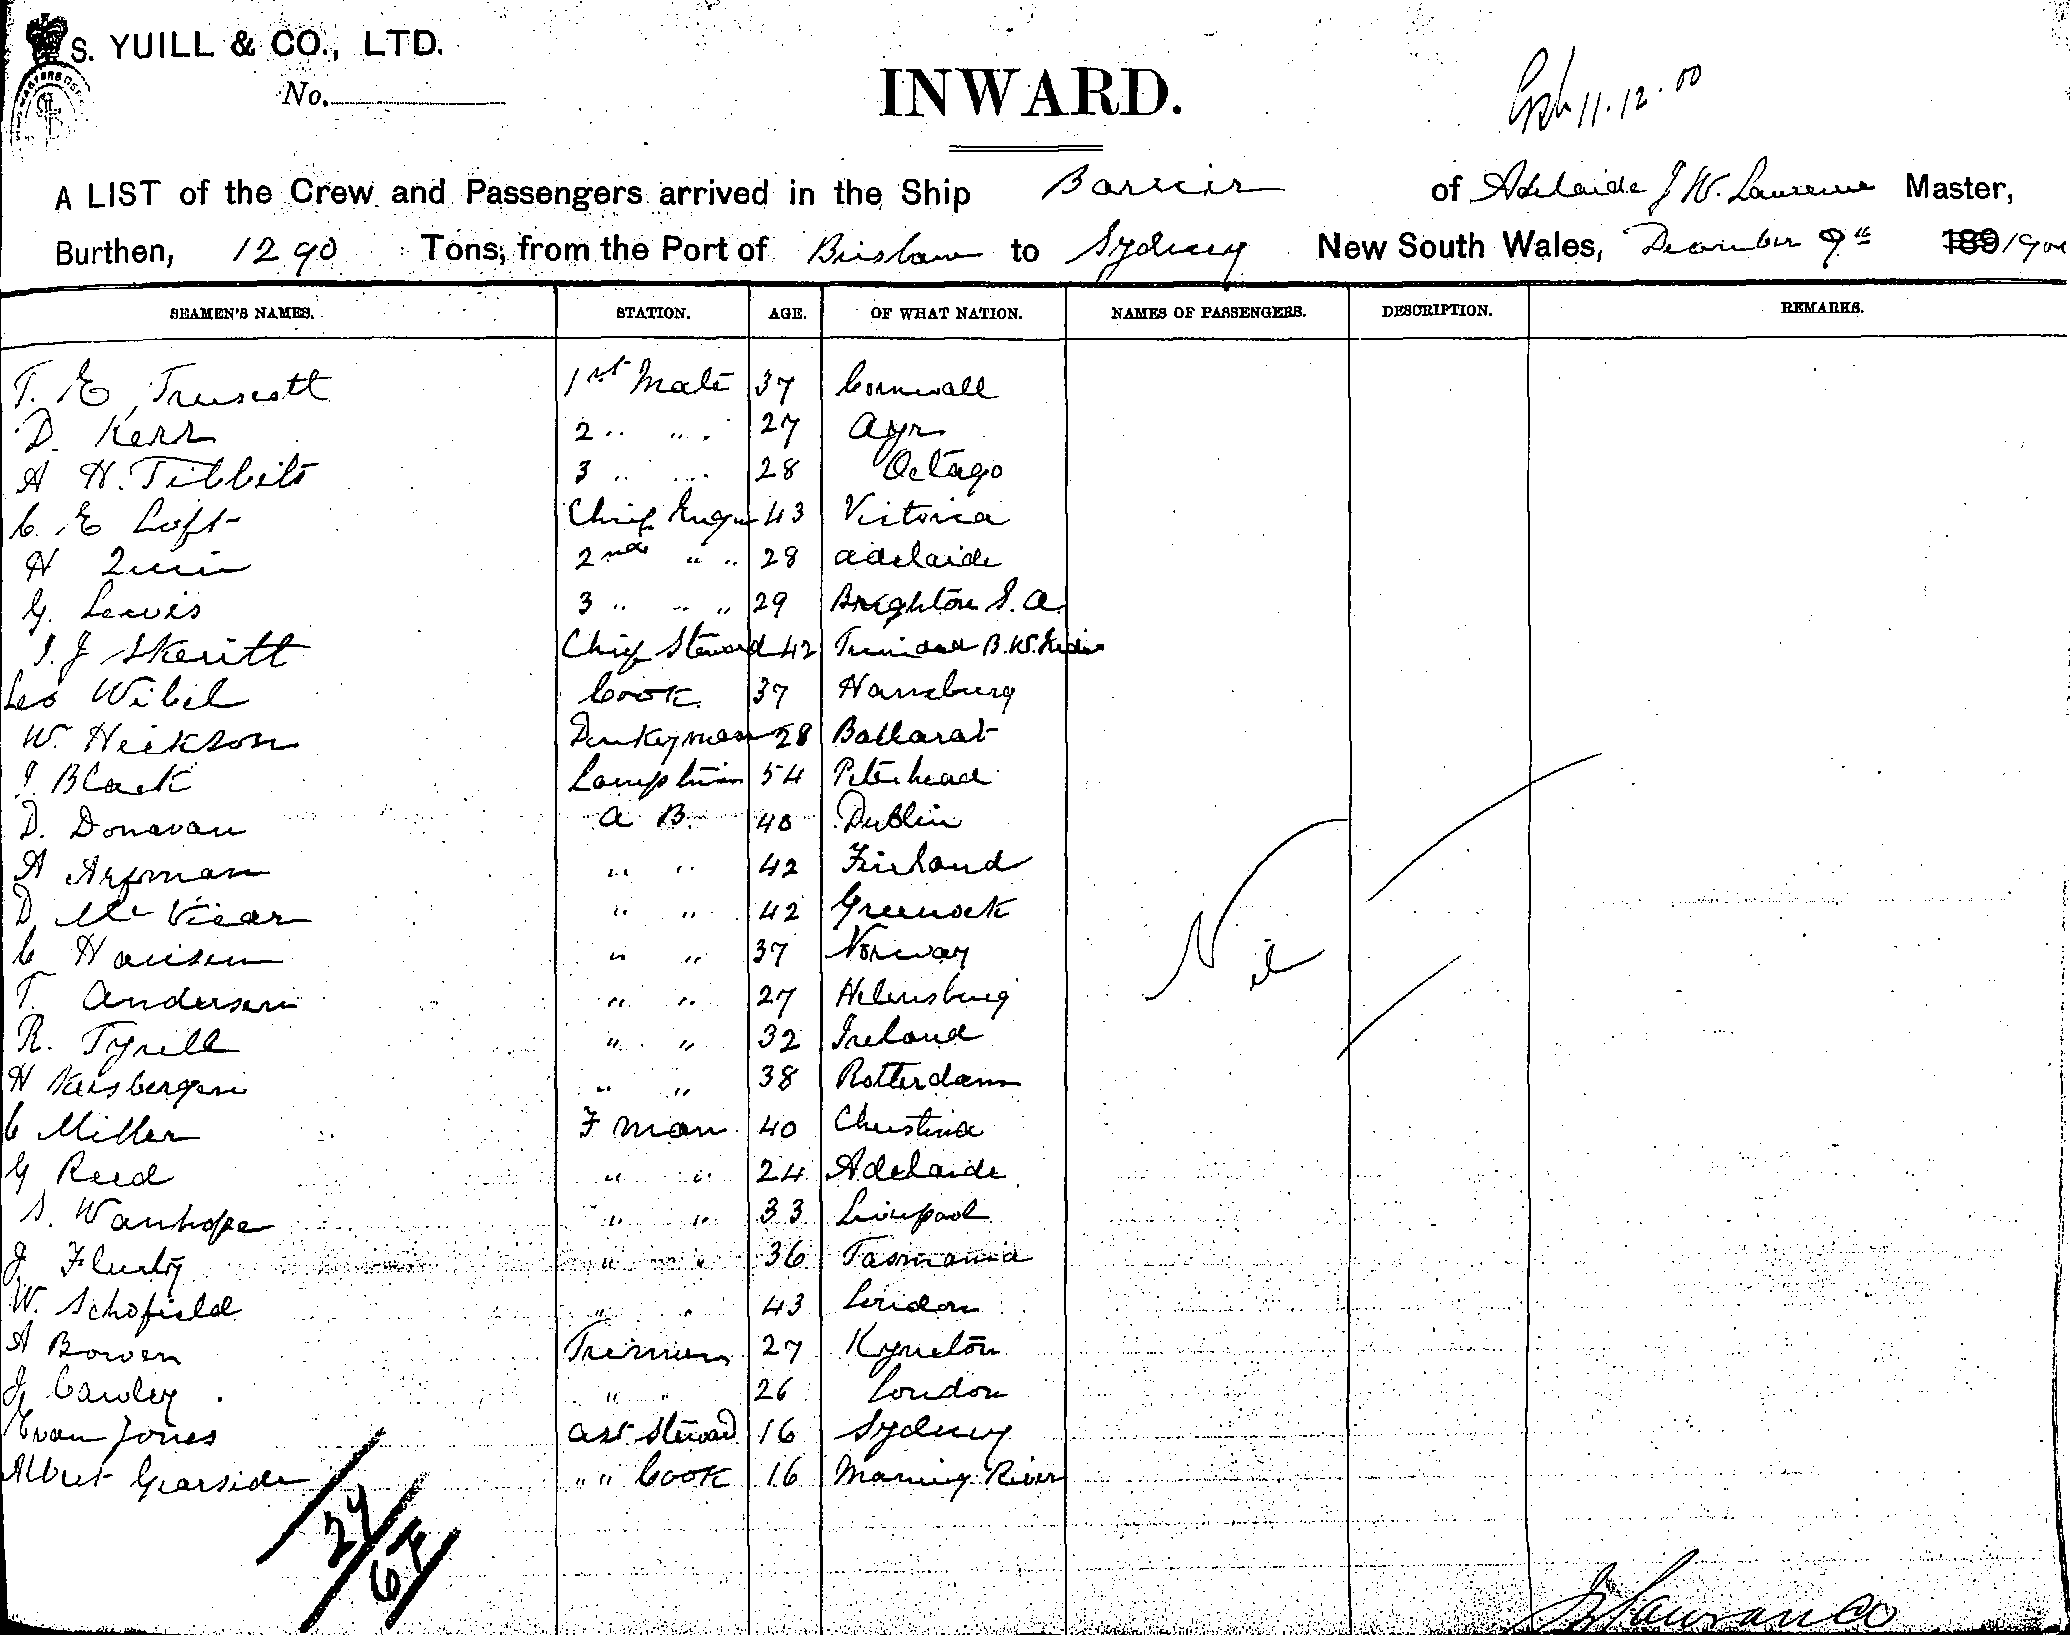 S. YUILL & CO., LTD.
No.
INWARD.
11.12.00
A LIST of the Crew and Passengers arrived in the Ship Barrier of Adelaide J W. Lawrence Master,
Burthen, 1290 Tons, from the Port of Brisbane to Sydney New South Wales, December 9th 189 1900
SEAMEN'S NAMES. STATION. AGE. OF WHAT NATION. NAMES OF PASSENGERS. DESCRIPTION. REMARKS.
T. E Truscott 1st Mate 37 Cornwall
D. Kerr 2 " " 27 Ayr
A H. Tibbits 3 " " 28 Octago
C. E Loft Chief Engnr 43 Victoria
H Quin 2nd " " 28 Adelaide
G. Lewis 3 " " " 29 Brighton S. A.
J. J Skeritt Chief Steward 42 Trinidad B. W. Indies
Leo Wibel Cook 37 Hamburg
W. Heckson Donkeyman 28 Ballarat
J. Black Lamptrim 54 Peterhead
D. Donavan A B. 40 Dublin
A " " 42 Finland
D Mc Vicar " " 42 Greenock
C Hansen " " 37 Norway
T. Andersen " " 27 Helensburg
R. Tyrell " " 32 Ireland
H " " 38 Rotterdam
C Miller F man 40 Christina
G Reed " " 24 Adelaide
S. Wanhope " " 33 Liverpool
J Flurty " " 36 Tasmania
W. Schofield " " 43 London
A Bowen Trimmer 27 Kyneton
J Cawley " " 26 London
Evan Jones Ast Steward 16 Sydney
Albert Garside " " Cook 16 Maning River
Nil
27
64
J W Lawrance